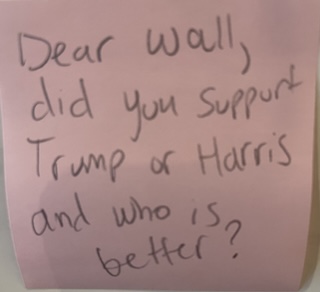 Dear Wall,
did you support
Trump or Harris
and who is
better?